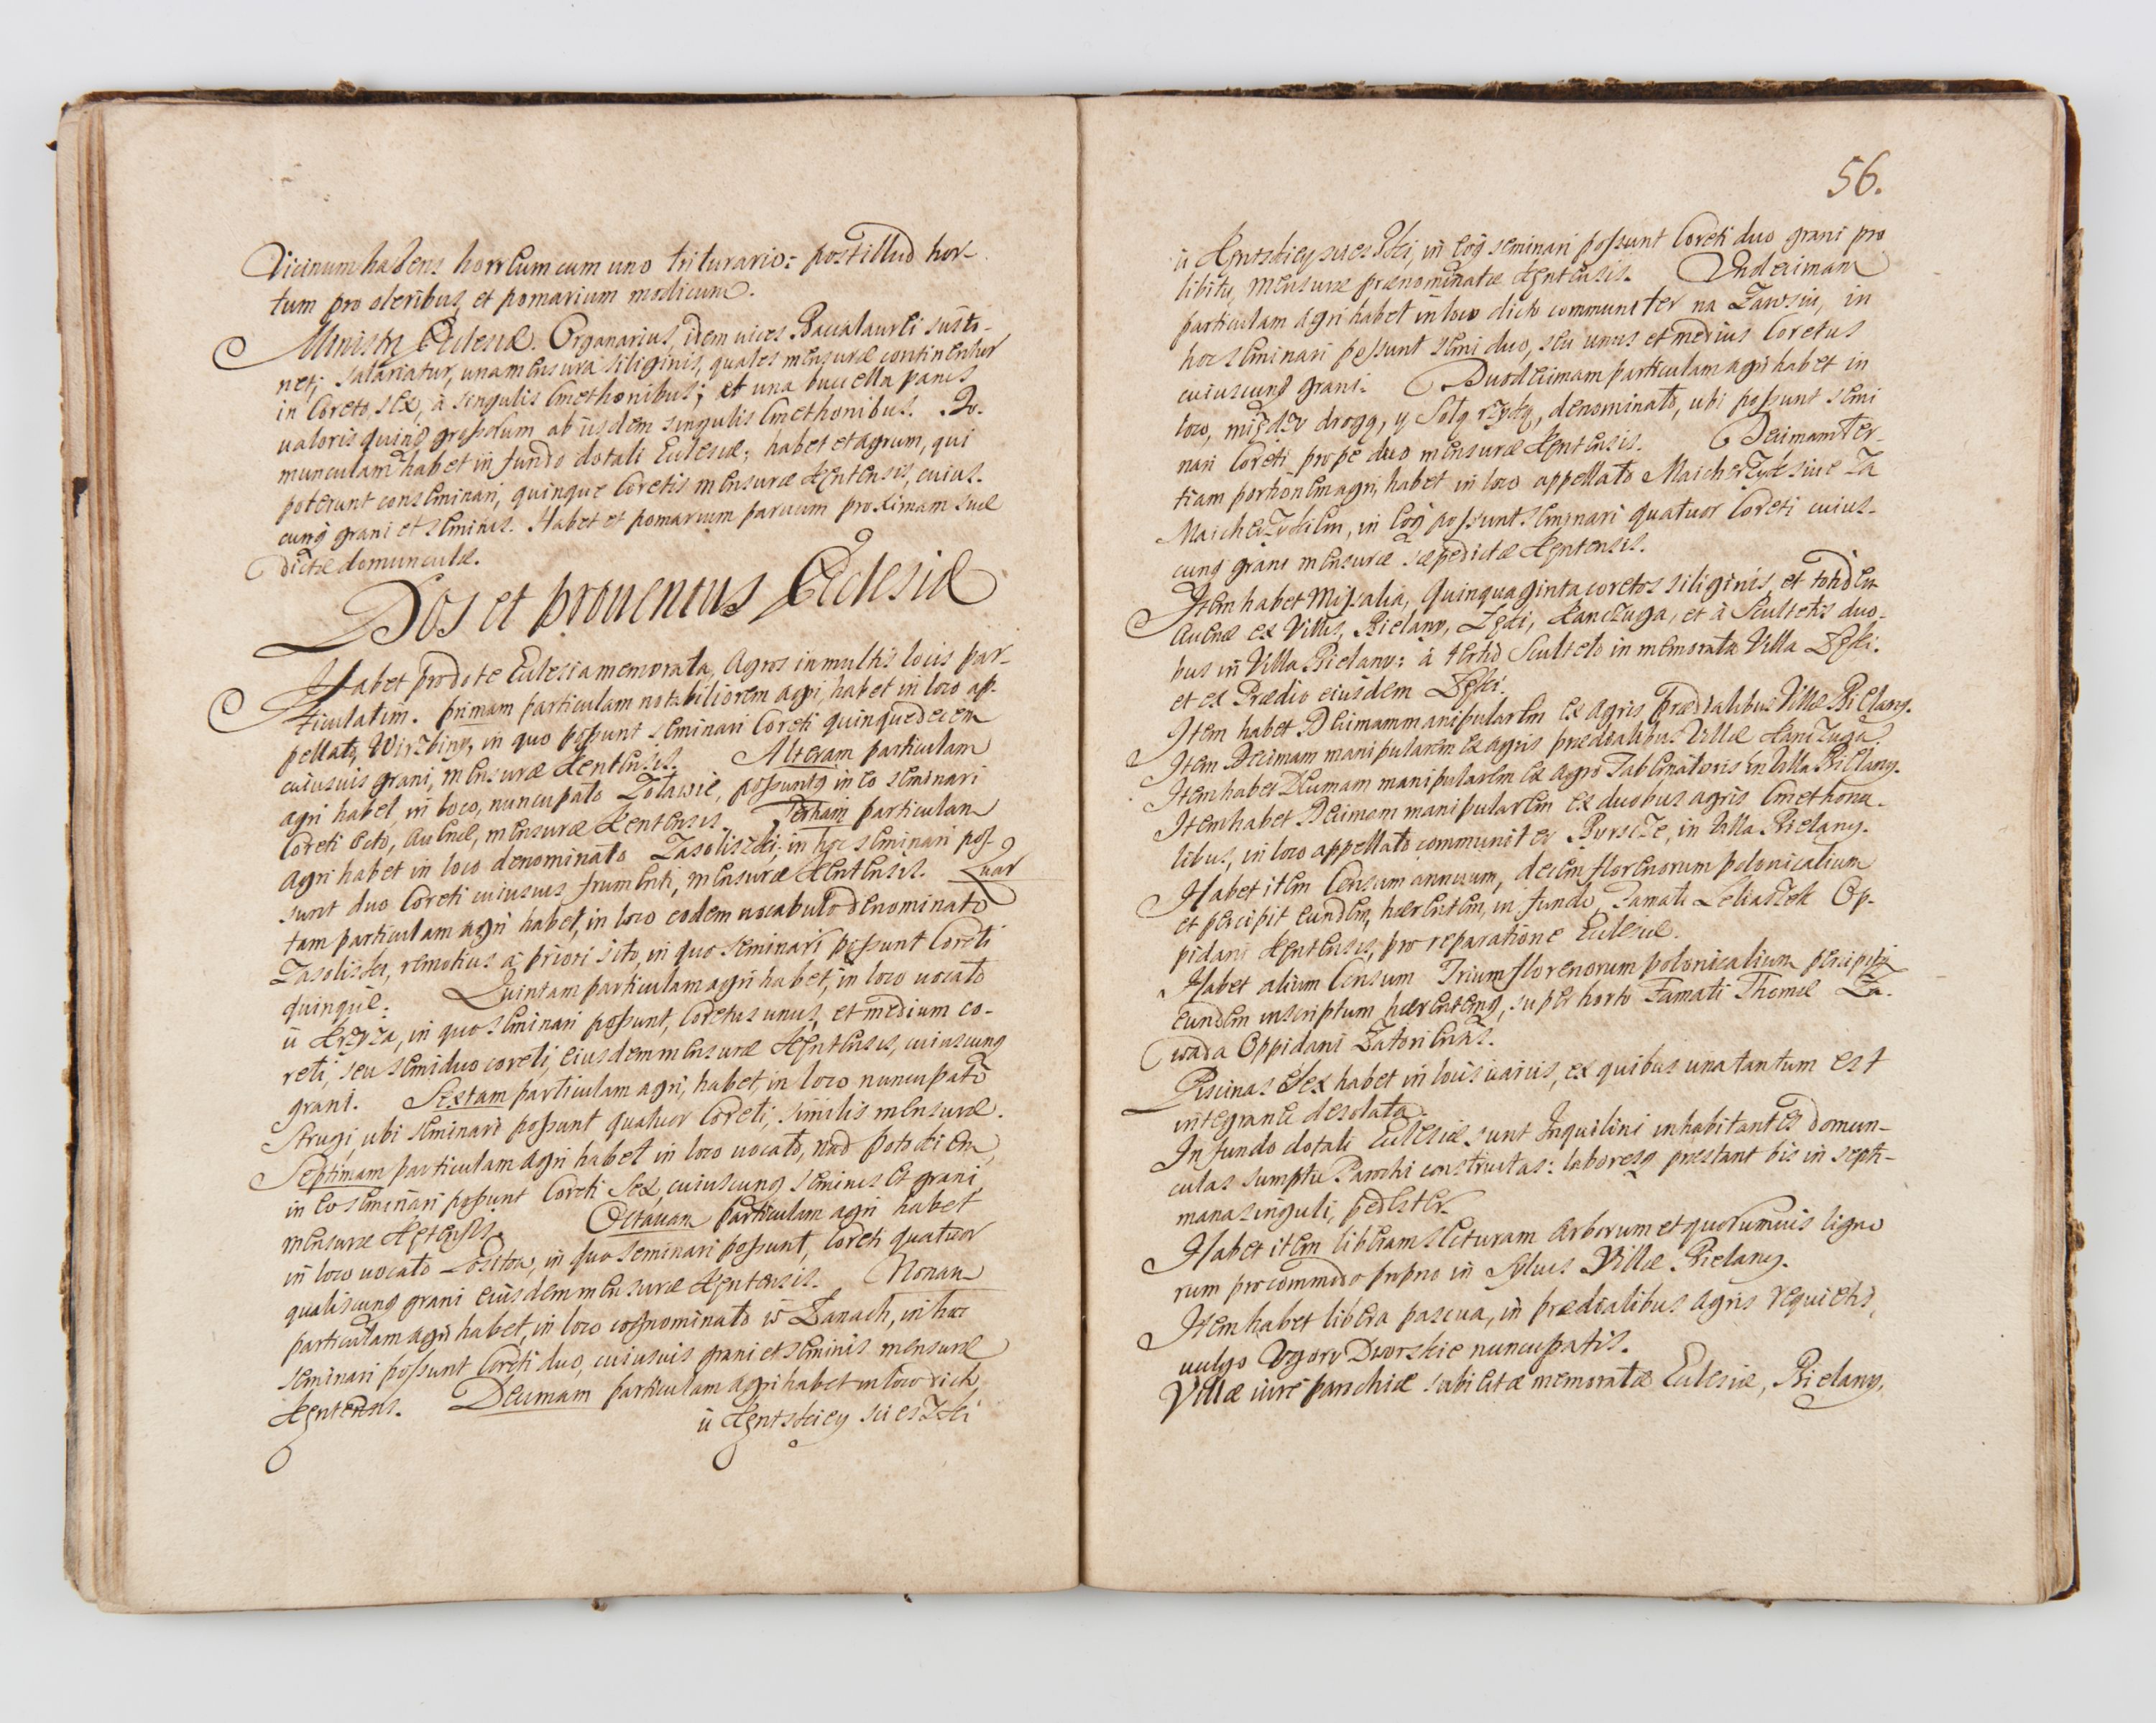 Vicinum habens horreum cum uno triturario: post illud hor-
tum pro oleribus, et pomarium modicum.
Ministri Ecclesiæ. Organarius, idem uices Baccalaurei susti-
net, salariatur, una mensura siliginis, quales mensuræ continentur
in Coreto sex, à singulis Cmethonibus; et una buccella panis
ualoris quinq grossorum ab iisdem singulis Cmethonibus. Do-
munculam habet in fundo dotali Ecclesiæ; habet et agrum, qui
poterunt conseminari, quinque Coretis mensuræ Kentensis, cuius-
cunq grani et seminis. Habet et pomarium paruum proximam suæ
dictæ domunculæ.
Dos et prouentus Ecclesiæ
Habet pro dote Ecclesia memorata, Agros in multis locis par-
ticulatim. primam particulam notabiliorem agri, habet in loco ap-
pellato, Wirzbiny, in quo possunt seminari Coreti quinquedecem
cuiusuis grani, mensuræ Kentensis. Alteram particulam
agri habet, in loco, nuncupato Zotawie, possuntq in eo seminari
Coreti octo, Auenæ, mensuræ Kentensis. Tertiam particulam
Agri habet in loco denominato Zasoliszki; in hoc seminari pos-
sunt duo Coreti cuiusuis frumenti, mensuræ Kentensis. Quar
tam particulam agri habet, in loco eodem uocabulo denominato
Zasoliszki, remotius à priori sito, in quo seminari possunt Coreti
quinque: Quintam particulam agri habet, in loco uocato
ü Krzyza, in quo seminari possunt, Coretus unus, et medium co-
reti, seu semiduo coreti, eiusdem mensuræ Kentensis, cuiuscunq
grani. Sextam particulam agri, habet, in loco nuncupato
Strugi, ubi seminari possunt quatuor Coreti, similis mensuræ.
Septimam particulam agri habet in loco uocato, nad potokiem,
in eo seminari possunt Coreti Sex, cuiuscunq seminis et grani,
mensuræ Ketensis. Octauam particulam agri habet
in loco uocato in quo seminari possunt, Coreti quatuor
qualiscunq grani eiusdem mensuræ Kentensis. Nonam
particulam agri habet, in loco cognominato w Lanach, in hoc
seminari possunt Coreti duo, cuiusuis grani et seminis mensuræ
Kentensis. Decimam particulam agri habet in loco dicto
ü Kentskiey sciesZki
56.
ü Kentskiey sciesZki, in eoq seminari possunt Coreti duo grani pro
libitu, mensuræ prænominatæ Kentensis. Vndecimam
particulam agri habet in loco dicto communiter na Zawsiu, in
hoc seminari possunt semi duo, seu unus et medius Coretus
cuiuscunq grani. Duodecimam particulam agri habet in
loco, między drogą, y Sołą rzyką, denominato, ubi possunt semi
nari Coreti prope duo mensuræ Kentensis. Decimam Ter-
tiam portionem agri, habet in loco appellato Maicherzyk siue Za
Maicherzykiem, in eoq possunt seminari quatuor Coreti cuius-
cunq grani mensuræ sæpedictæ Kentensis.
Item habet Missalia, quinquaginta coretos siliginis et totidem
Auenæ ex Villis, Bielany, Lęki, Kanczuga, et à Scultetis duo-
bus in Villa Bielany: à tertio Sculteto in memorata Villa Lęki.
et ex Prædio eiusdem Lęki.
Item habet Decimam manipularem ex agris prædialibus Villæ Bielany.
Item Decimam manipularem ex agris prædialibus Villæ Kanczuga.
Item habet Decimam manipularem ex Agro Tabernatoris in Villa Bielany.
Item habet Decimam manipularem ex duobus agris Cmethona-
libus, in loco appellato communiter in Villa Bielany.
Habet item Censum annuum, decem florenorum polonicalium
et percipit eundem, hærentem, in fundo, Famati Op-
pidani Kentensis, pro reparatione Ecclesiæ.
Habet alium Censum Trium florenorum polonicalium percipitq
eundem inscriptum hærentemq, super horto Famati Thomæ Za-
wada Oppidani Zatoriensis.
Piscinas Sex habet in locis uariis, ex quibus una tantum est
integrante desolata.
In fundo dotali Ecclesiæ sunt Inquilini inhabitantes domun-
culas sumptu Parochi constructas: laboresq præstant bis in septi-
mana singuli, pedester.
Habet item liberam secturam Arborum et quorumuis ligno
rum pro commodo proprio in Syluis Villæ Bielany.
Item habet libera pascua, in prædialibus Agris requietis,
uulgo Vgory Dworskie nuncupatis.
Villæ iure parochiæ subiectæ memoratæ Ecclesiæ, Bielany,